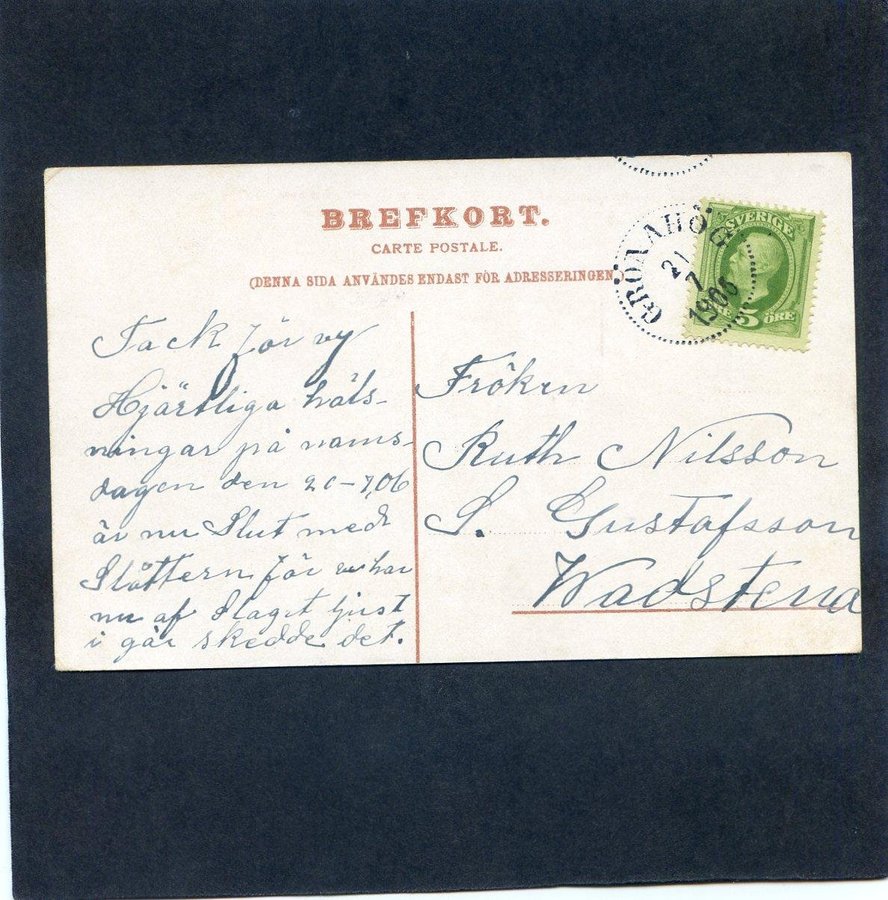 BREFKORT.
CARTE POSTALE.
(DENNA SIDA ANVÄNDES ENDAST FÖR ADRESSERINGEN.)
SVERIGE
5 ÖRE
21
7
1906
Tack för vy
Hjärtliga häls-
ningar på nams-
dagen den 20-7,06
är nu Slut med
Slåttern för har
nu af Slaget just
i går skedde det.
Fröken
Ruth Nilsson
S. Gustafsson
Wadstena